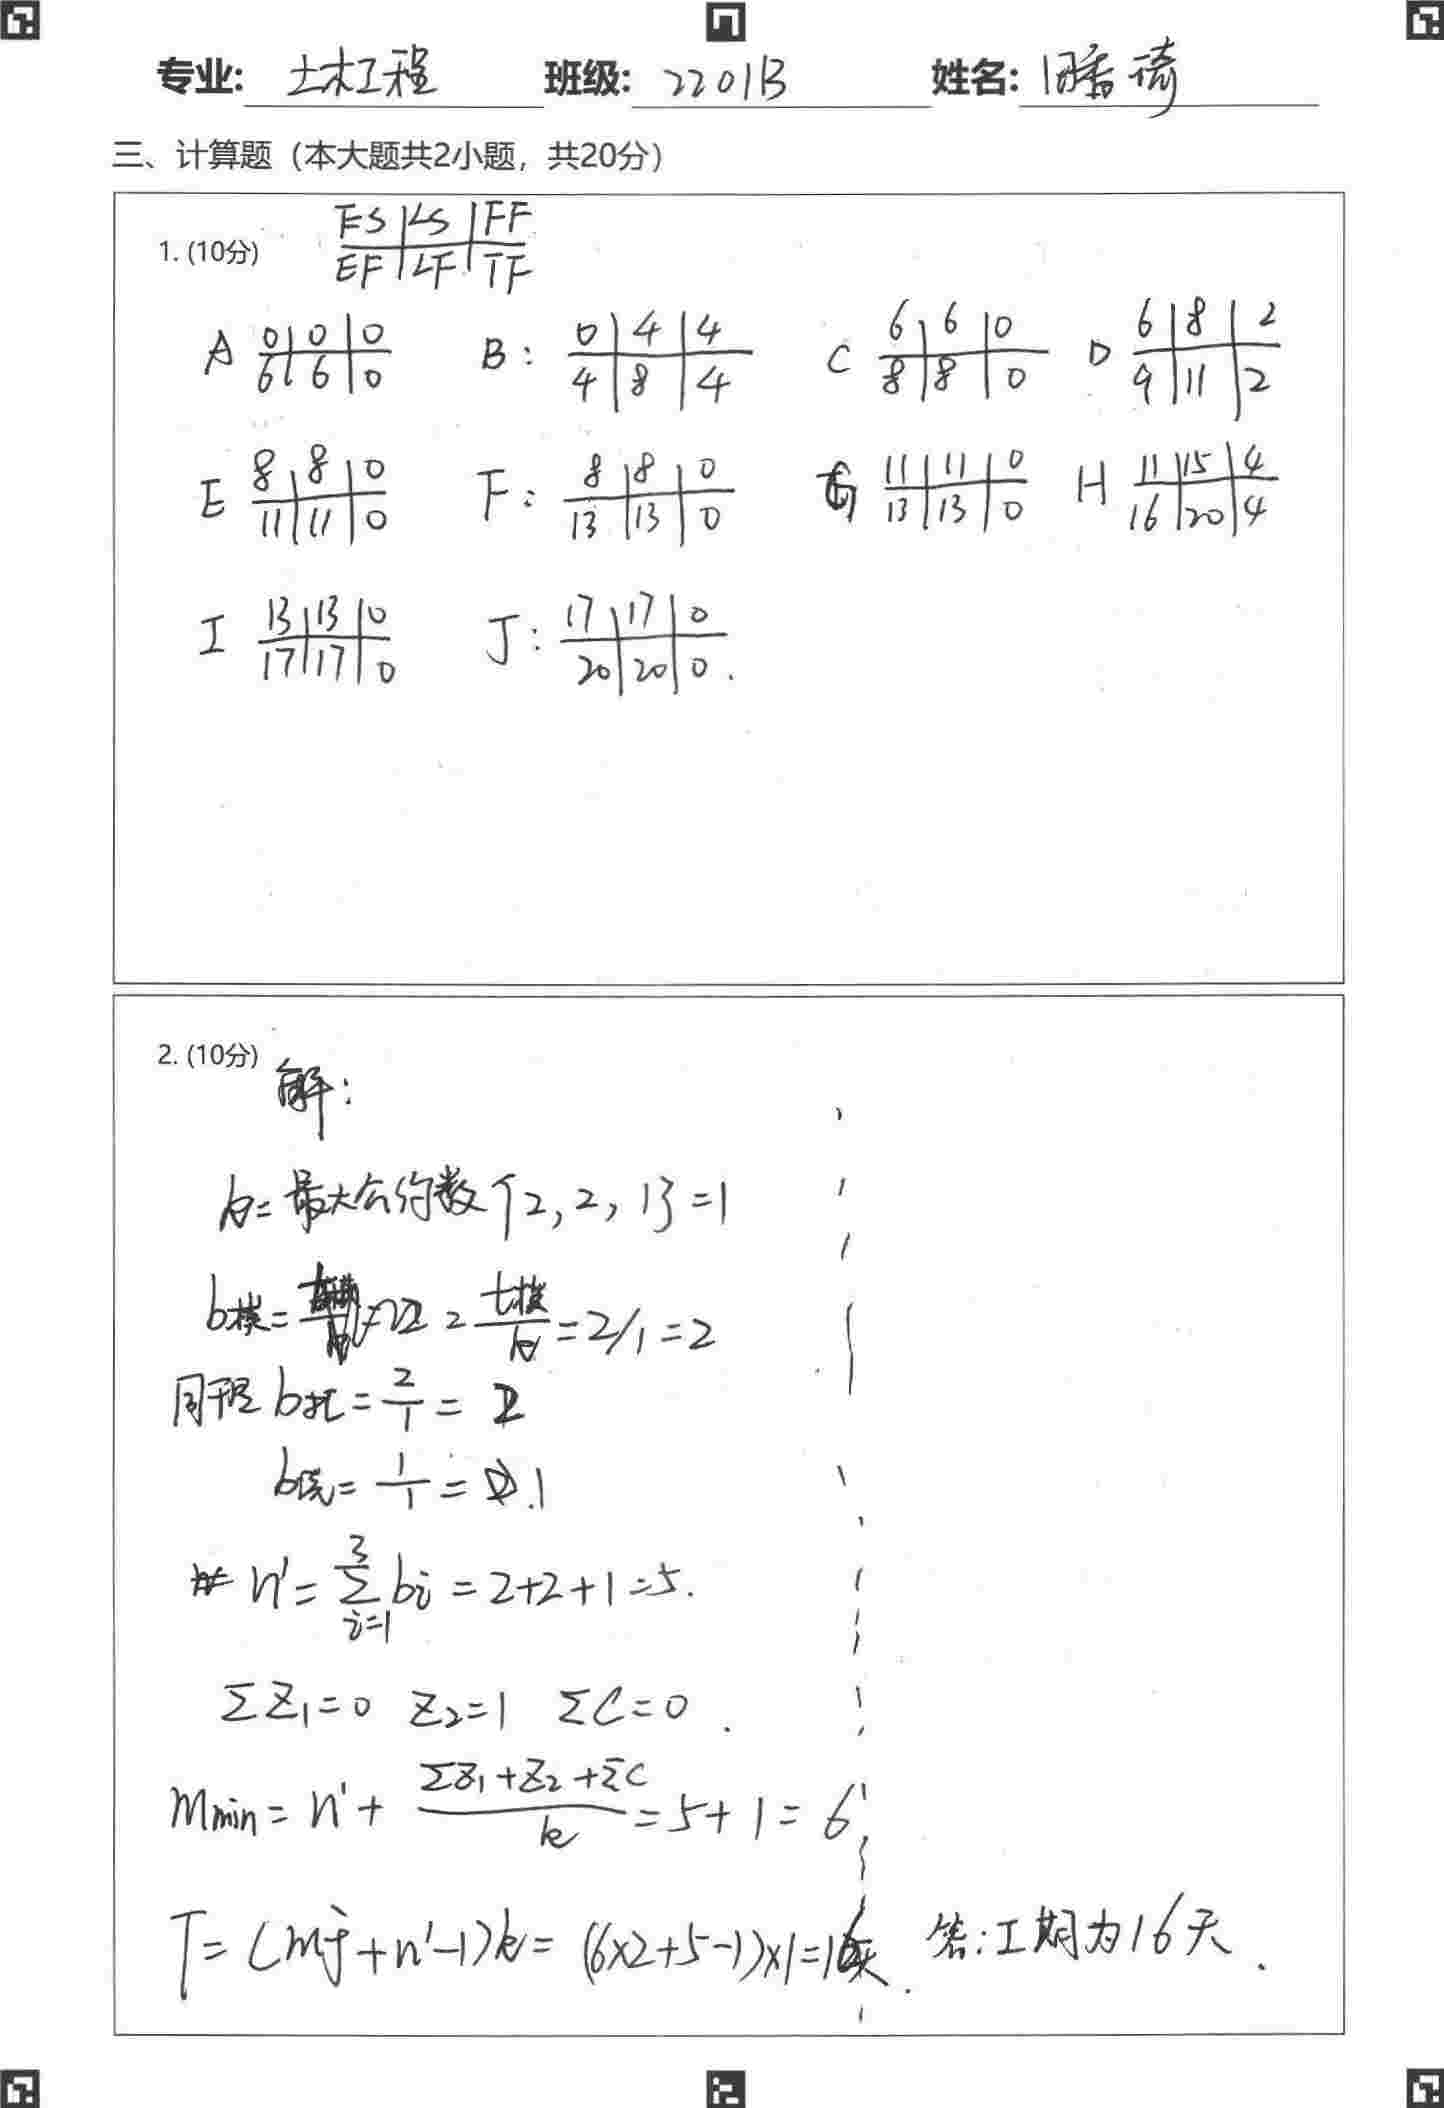 专业: 土木工程 班级: 2201B 姓名:
三、计算题（本大题共2小题，共20分）
1. (10分)
ES | LS | FF
EF | LF | TF
A 0 | 0 | 0 B: 0 | 4 | 4 C 6 | 6 | 0 D 6 | 8 | 2
6 | 6 | 0 4 | 8 | 4 8 | 8 | 0 9 | 11 | 2
E 8 | 8 | 0 F: 8 | 8 | 0 G 11 | 11 | 0 H 11 | 15 | 4
11 | 11 | 0 13 | 13 | 0 13 | 13 | 0 16 | 20 | 4
I 13 | 13 | 0 J: 17 | 17 | 0
17 | 17 | 0 20 | 20 | 0.
2. (10分)
解:
k=最大公约数{2, 2, 1}=1
b模= = t模/k =2/1=2
同理 b扎= 2/1 = 2
b浇= 1/1 = 1
n'= Σ(i=1→3) bi =2+2+1=5.
ΣZ₁=0 Z₂=1 ΣC=0.
Mmin= n'+ (ΣZ₁+Z₂+ΣC)/k =5+1=6
T=(mj+n'-1)k= (6×2+5-1)×1=16天. 答:工期为16天.